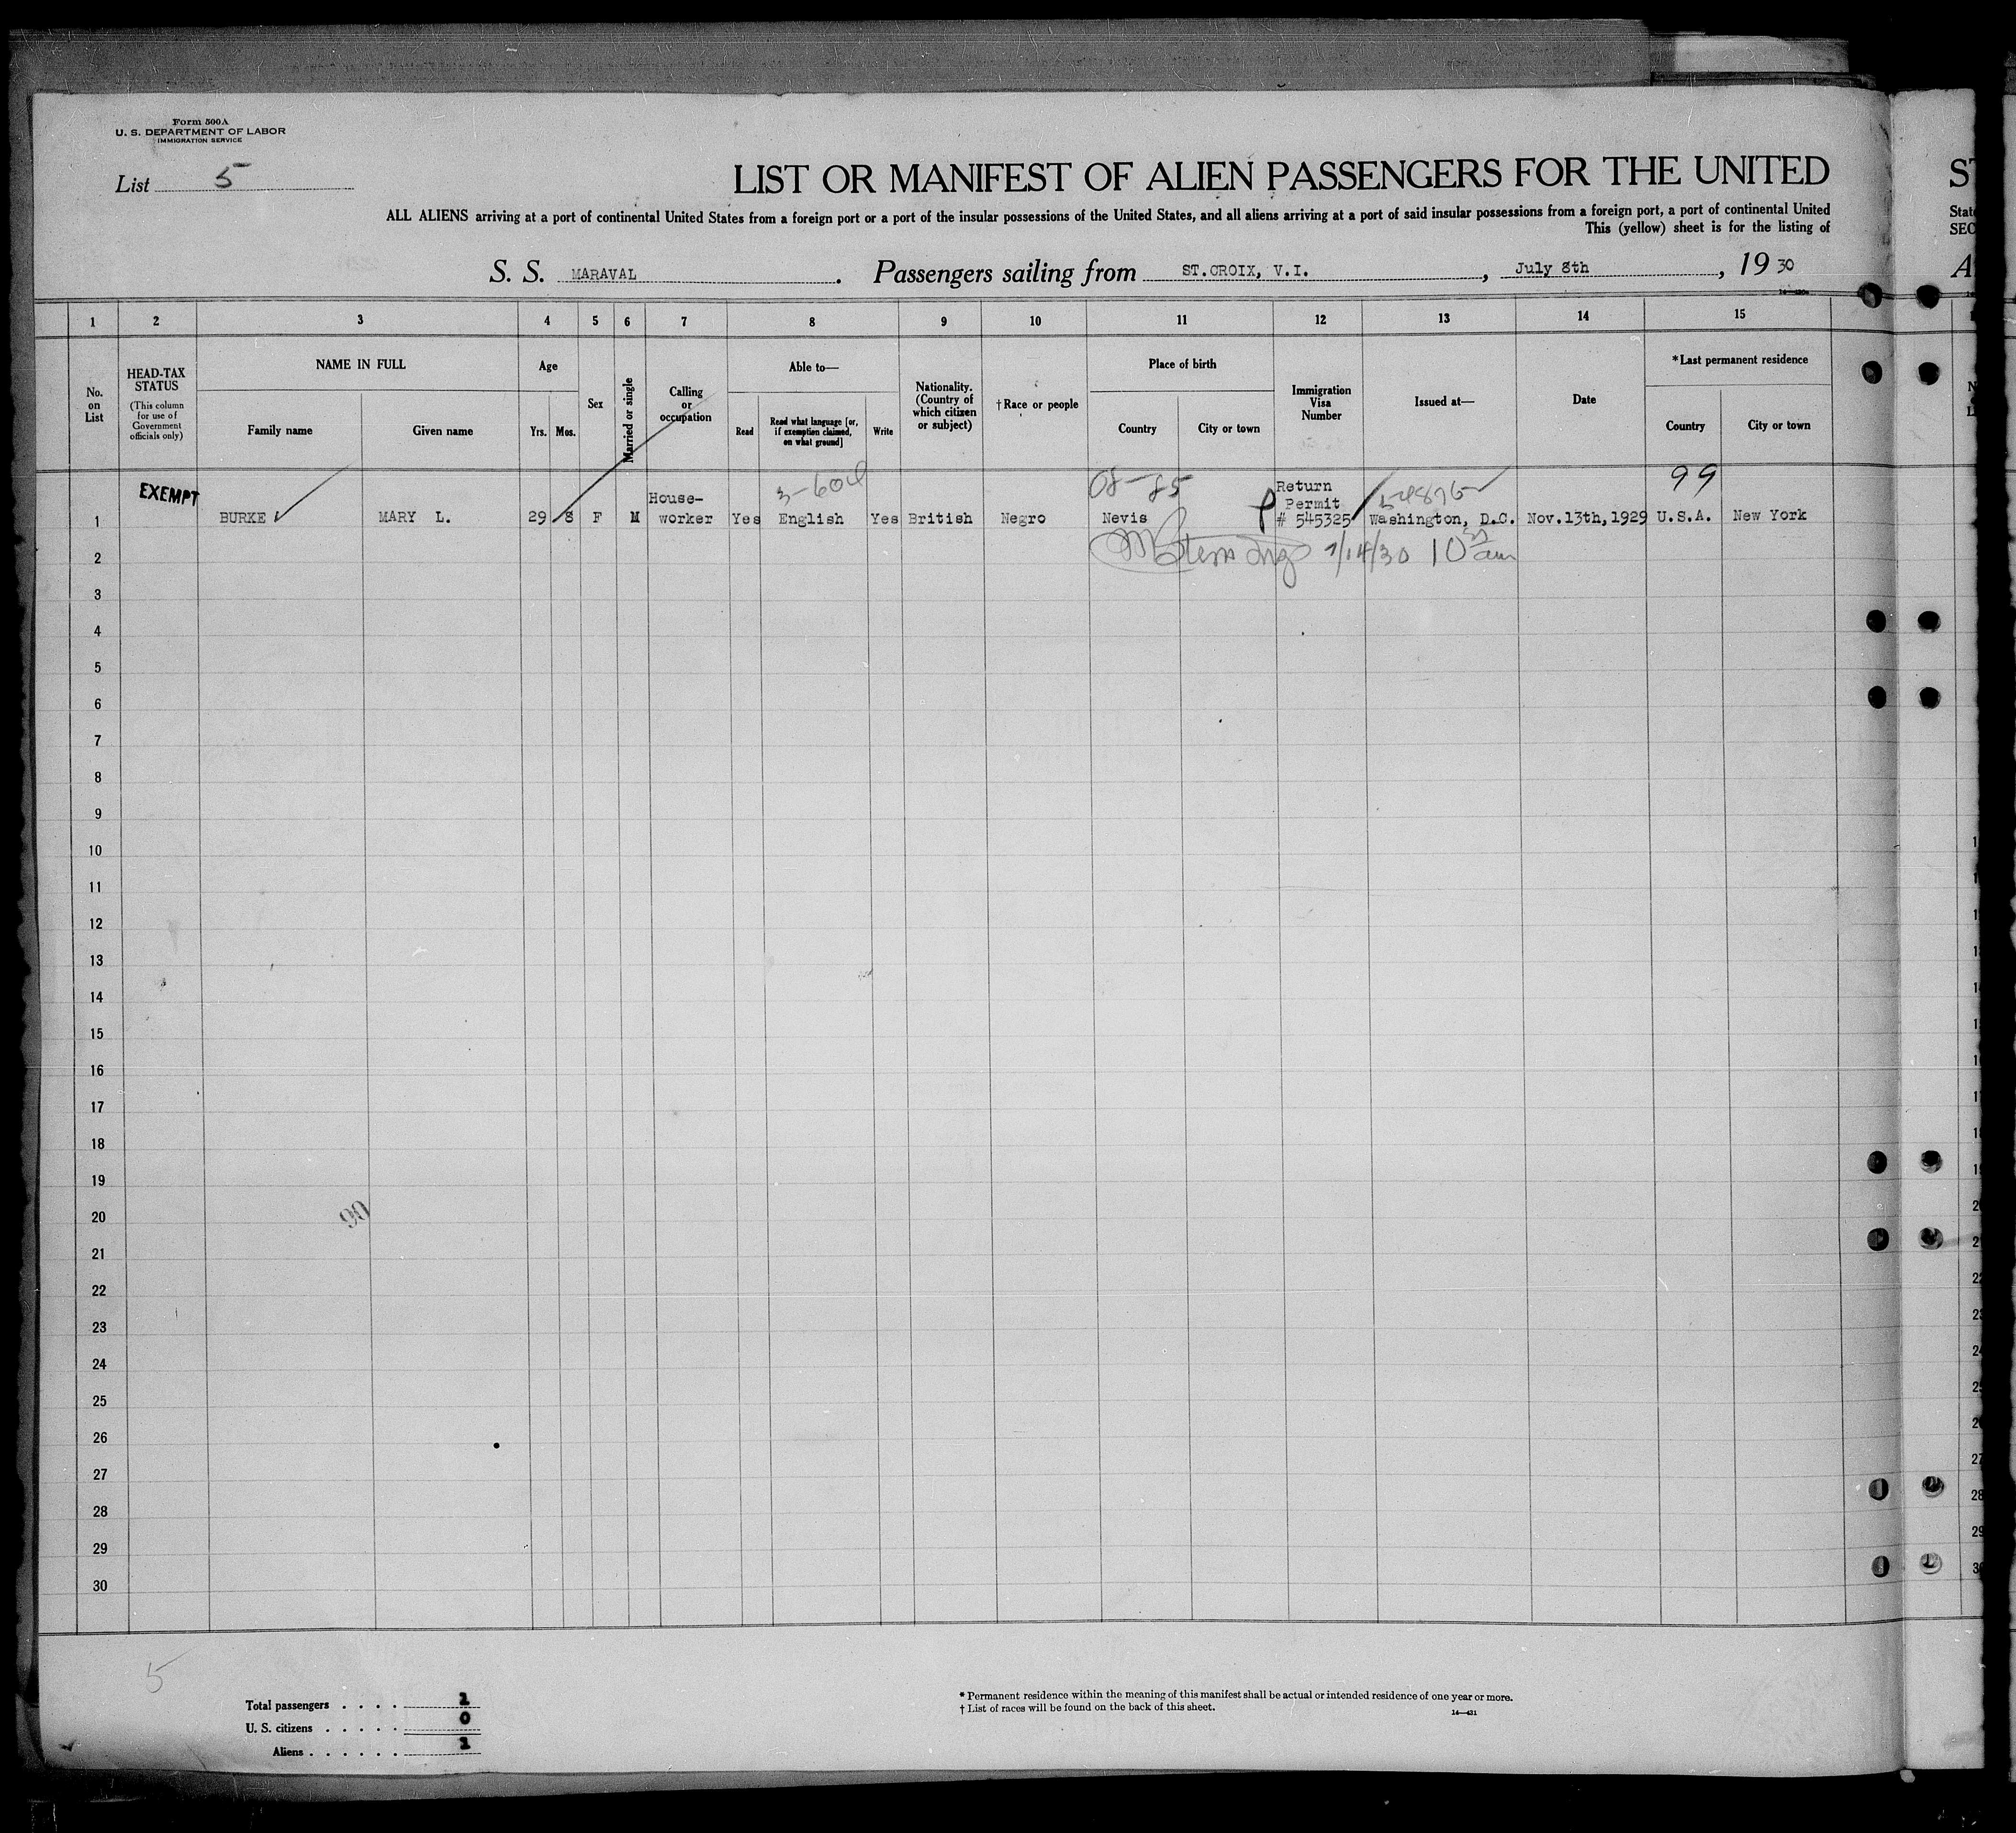 Form 500A
U. S. DEPARTMENT OF LABOR
IMMIGRATION SERVICE
List 5
LIST OR MANIFEST OF ALIEN PASSENGERS FOR THE UNITED
ALL ALIENS arriving at a port of continental United States from a foreign port or a port of the insular possessions of the United States, and all aliens arriving at a port of said insular possessions from a foreign port, a port of continental United
This (yellow) sheet is for the listing of
S. S. MARAVAL. Passengers sailing from ST.CROIX, V.I., July 8th, 1930
1 2 3 4 5 6 7 8 9 10 11 12 13 14 15
No. on List
HEAD-TAX STATUS
(This column for use of Government officials only)
NAME IN FULL
Family name
Given name
Age
Yrs. Mos.
Sex
Married or single
Calling or occupation
Able to—
Read
Read what language [or, if exemption claimed, on what ground]
Write
Nationality. (Country of which citizen or subject)
† Race or people
Place of birth
Country
City or town
Immigration Visa Number
Issued at—
Date
* Last permanent residence
Country
City or town
EXEMPT
3-604
08-85
99
1 BURKE MARY L. 29 8 F M House-worker Yes English Yes British Negro Nevis Return Permit # 545325 Washington, D.C. Nov.13th,1929 U.S.A. New York
7/14/30 10 am
2
3
4
5
6
7
8
9
10
11
12
13
14
15
16
17
18
19
20
21
22
23
24
25
26
27
28
29
30
5
Total passengers . . . . 1
U. S. citizens . . . . . 0
Aliens . . . . . . 1
* Permanent residence within the meaning of this manifest shall be actual or intended residence of one year or more.
† List of races will be found on the back of this sheet.
14—431